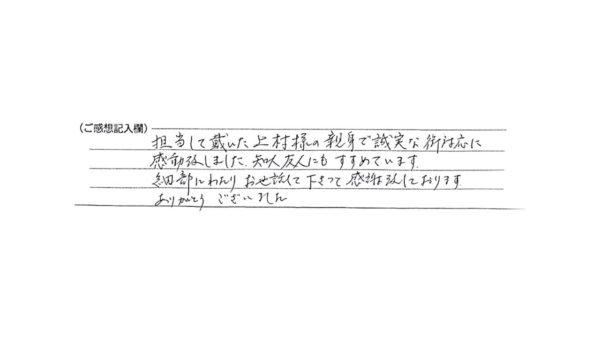 (ご感想記入欄)
担当して戴いた上村様の親身で誠実な御対応に
感動致しました。知人友人にもすすめています。
細部にわたりお世話して下さって感謝致しております。
ありがとうございました